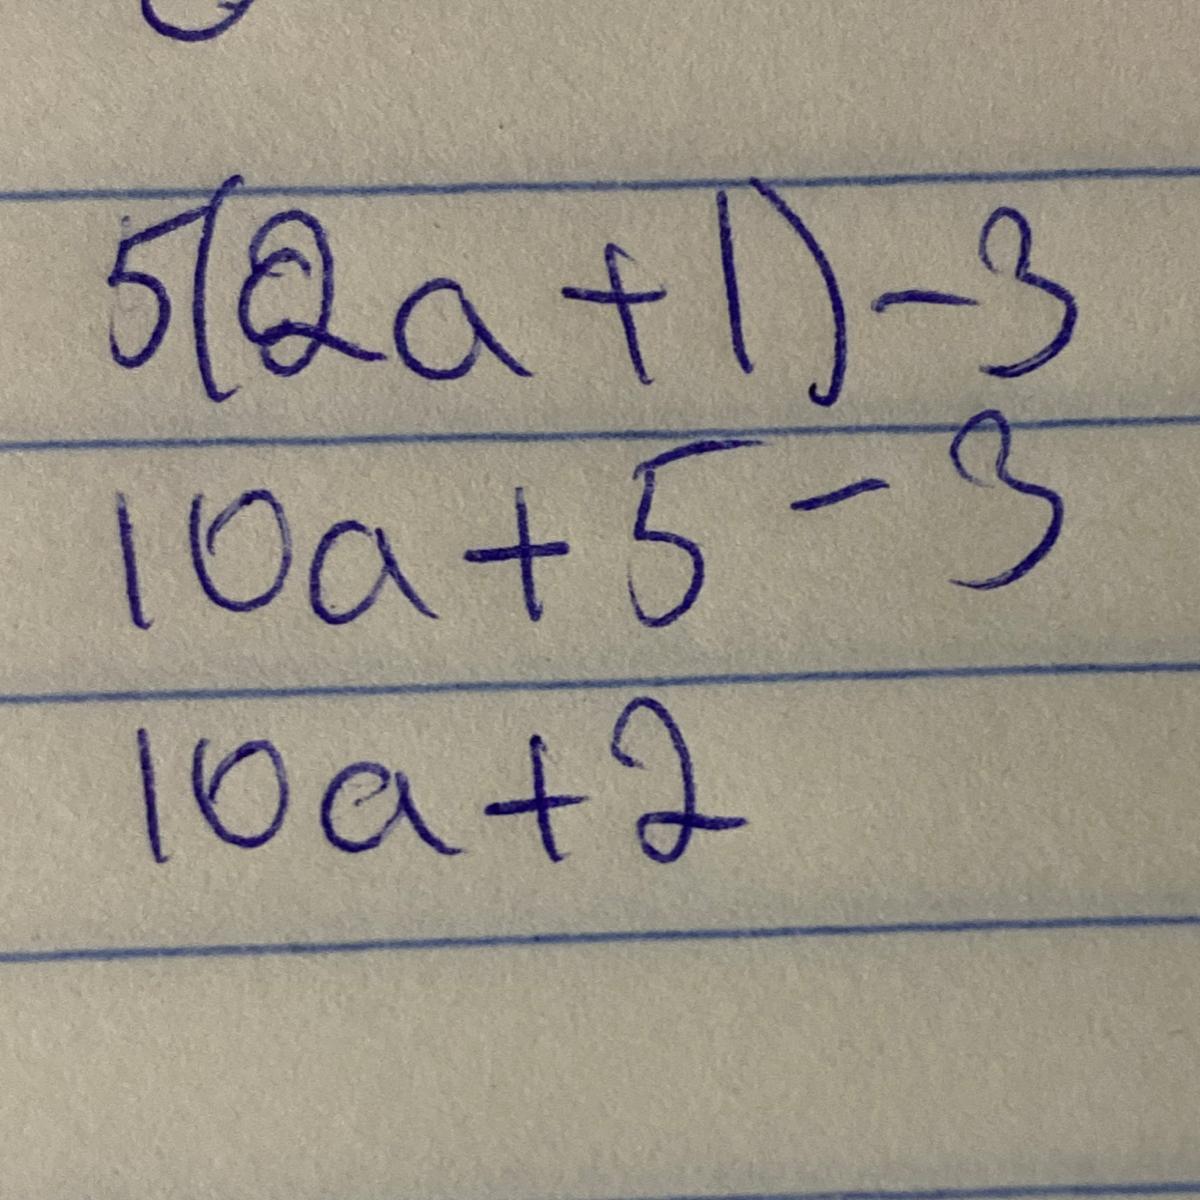 5(2a+1)-3
10a+5-3
10a+2